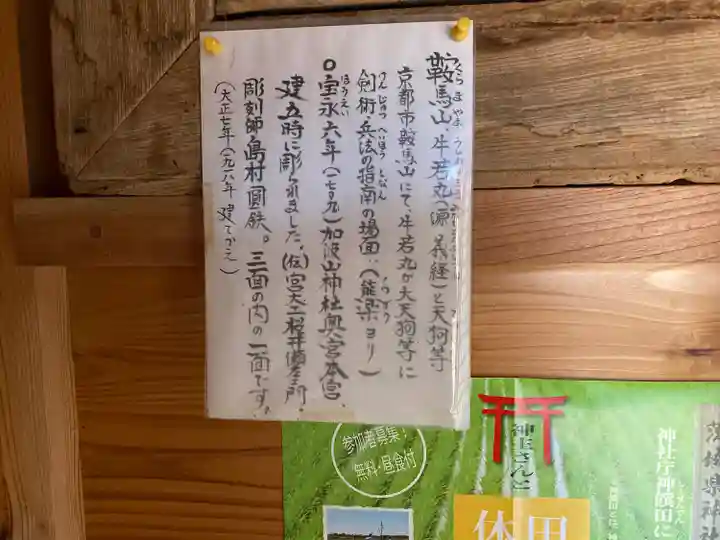 鞍馬山、牛若丸(源 義経)と天狗等
京都市鞍馬山にて、牛若丸が大天狗等に
剣術・兵法の指南の場面。(能楽ヨリ)
けんじゅつ へいほう しなん
のうがく
○宝永六年(一七〇九)加波山神社奥宮本宮、
ほうえい
建立時に彫られました。(伝)宮大工桜井
彫刻師島村圓鉄。三面の内の一面です。
(大正七年(一九一八年 建てかえ)
参加者募集!
無料・昼食付
神主さんと
田
体
神社庁神饌田に
茨城県神社